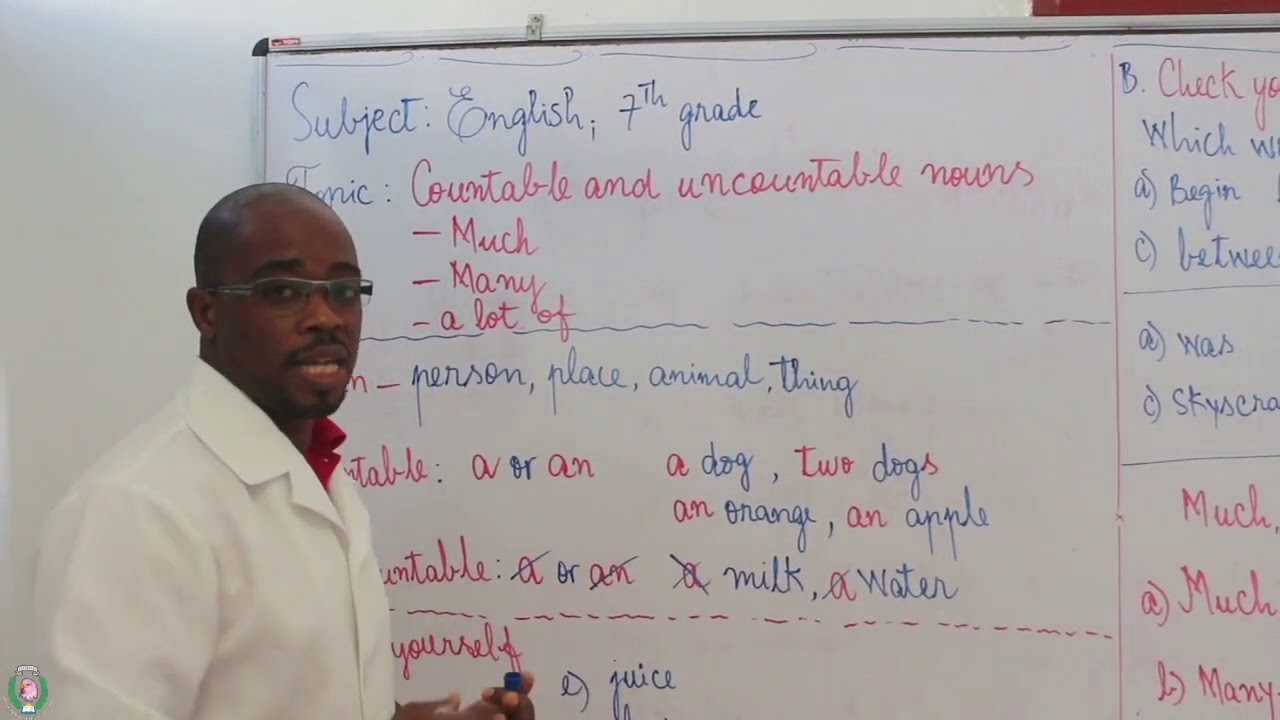 Subject: English, 7Th grade
Topic: Countable and uncountable nouns
- Much
- Many
- a lot of
n - person, place, animal, thing
ntable: a or an a dog, two dogs
an orange, an apple
untable: a or an a milk, a water
yourself
e) juice
B. Check yo
Which w
a) Begin
c) betwee
a) was
c) skyscra
Much,
a) Much
b) Many